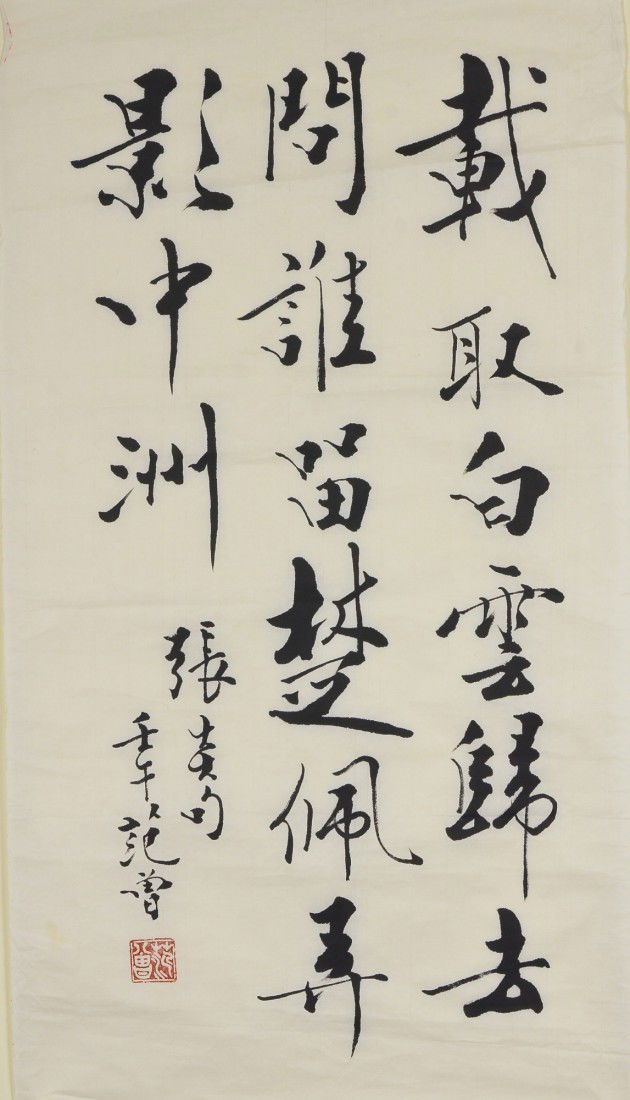 載取白雲歸去
問誰留楚佩弄
影中洲
張炎句
壬午范曾
范曾